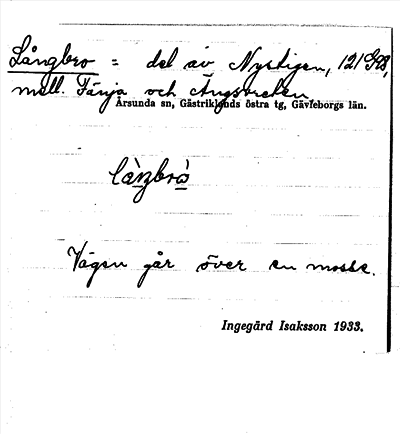 Långbro = del av Nystigen, 121
mell. Färja och Ängsveken
Årsunda sn, Gästriklands östra tg, Gävleborgs län.
Vägen går över en mosse.
Ingegärd Isaksson 1933.